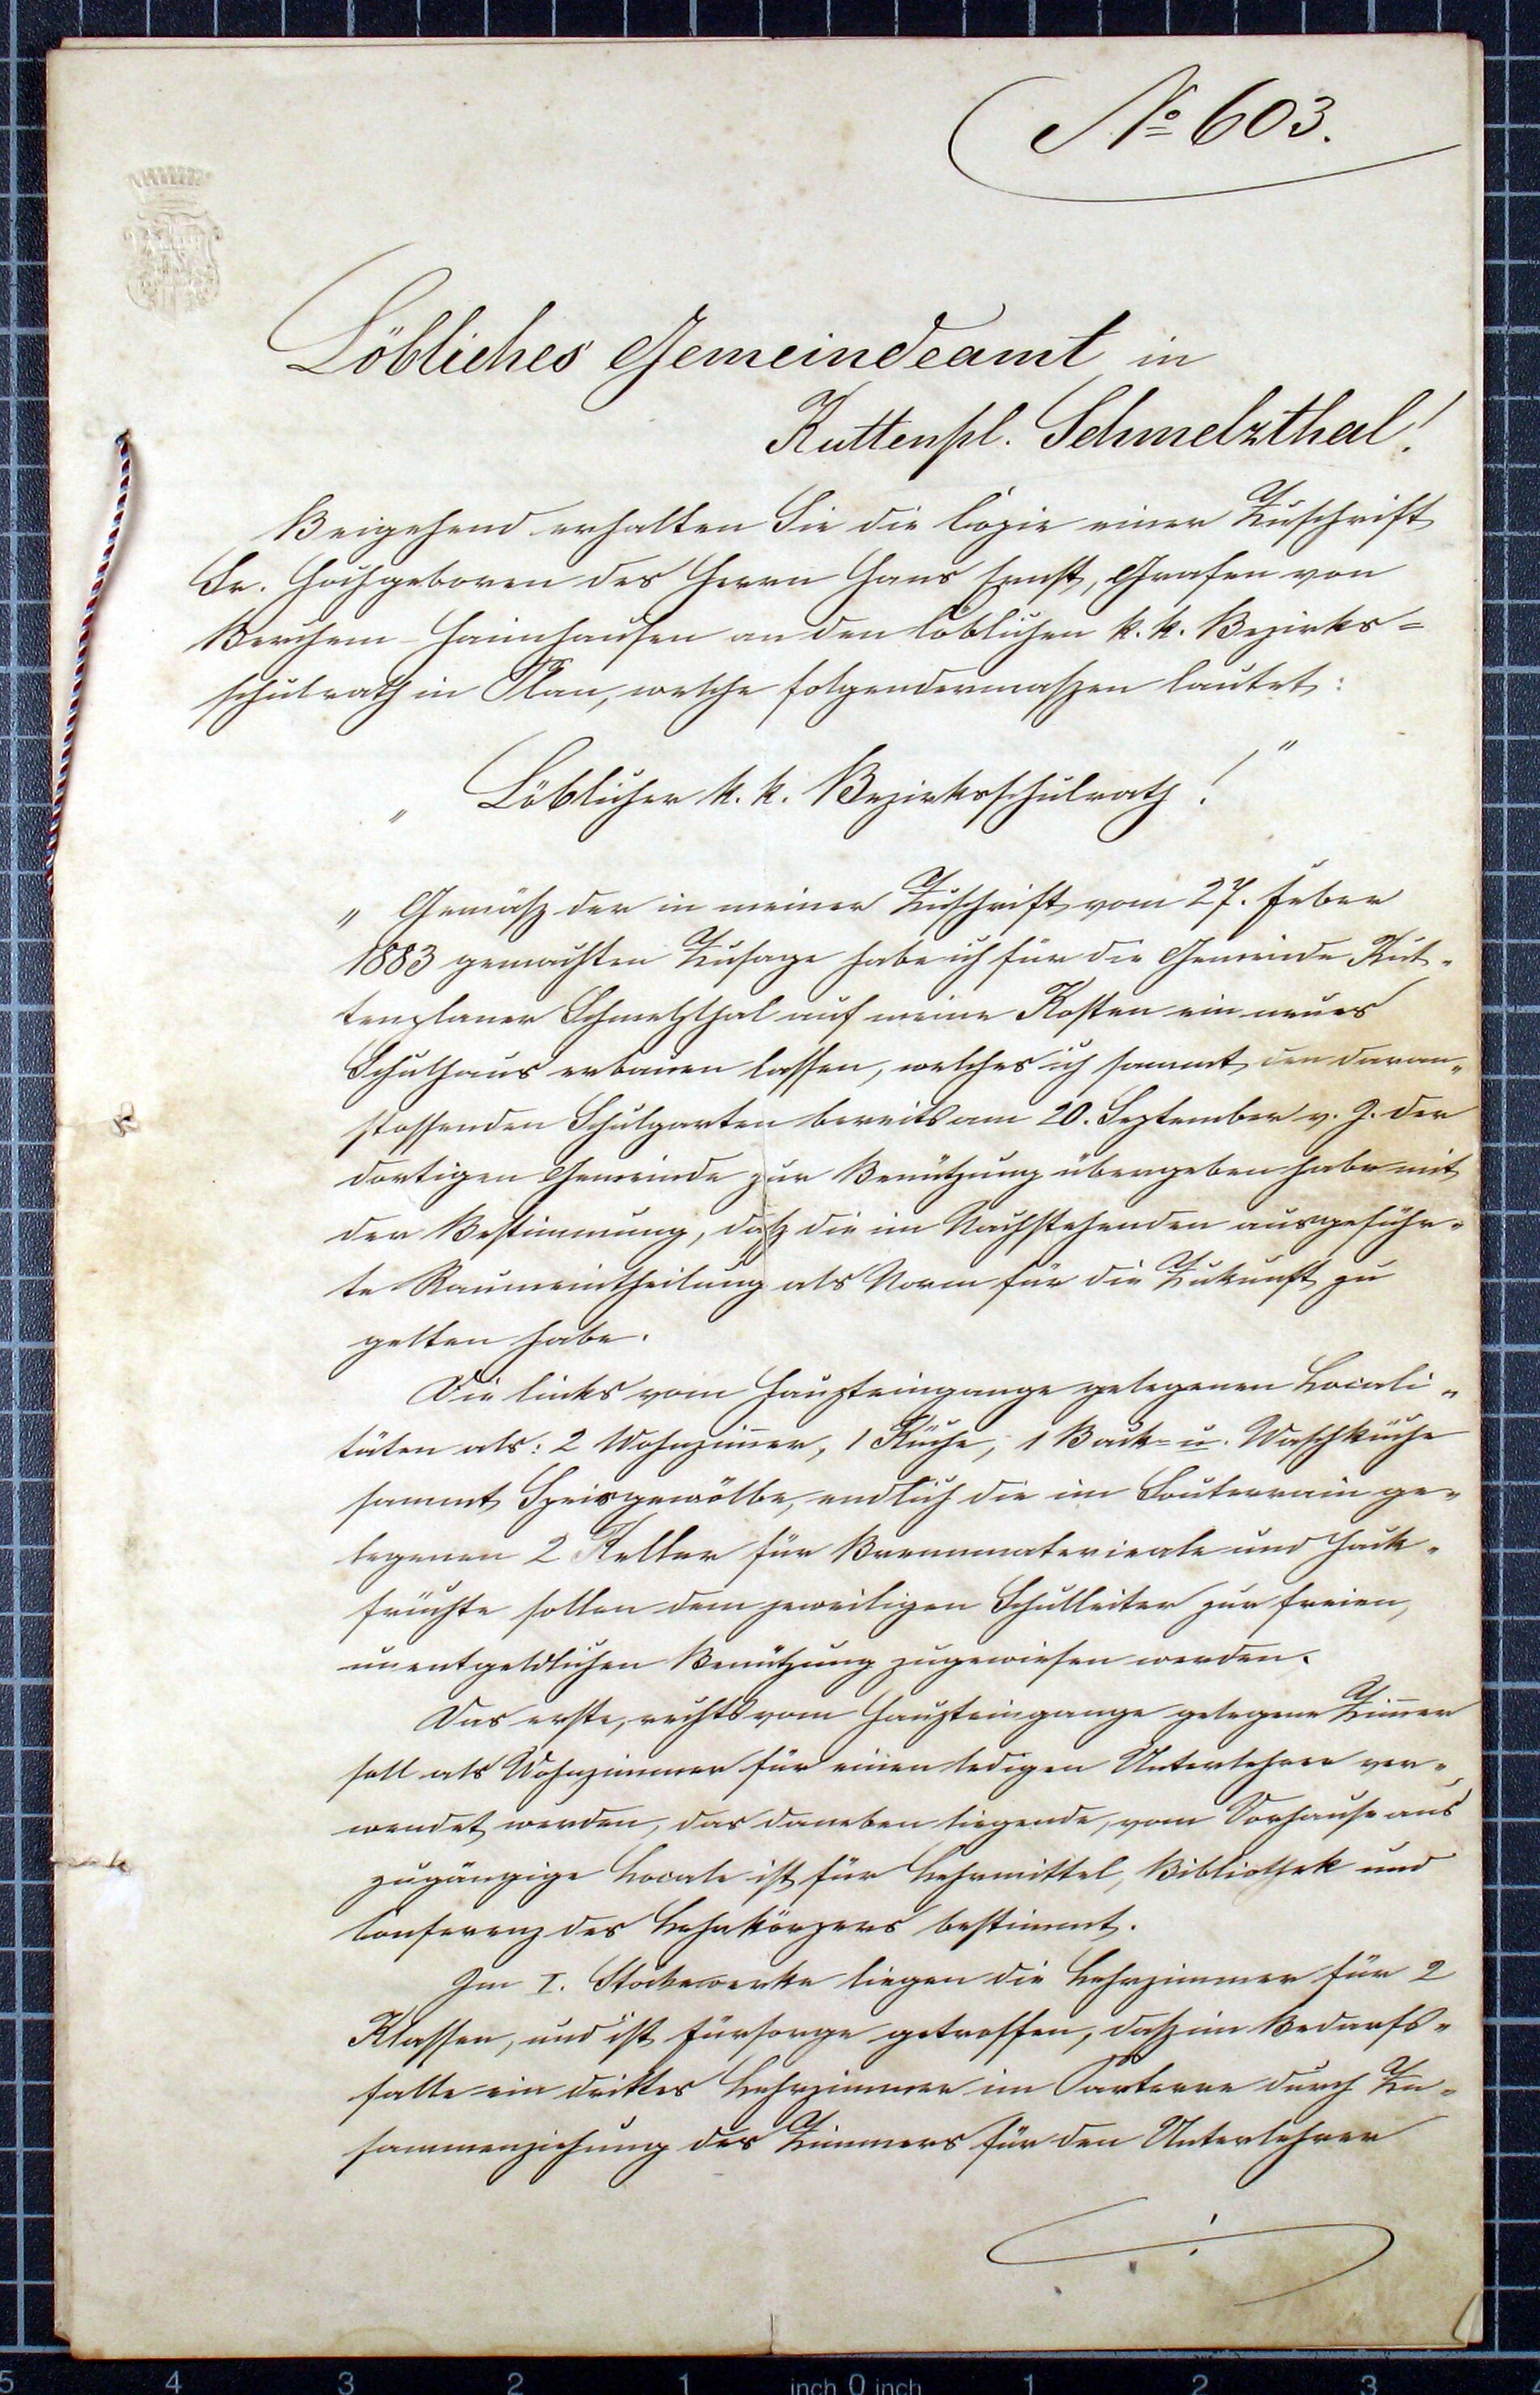 No 603.
Löbliches Gemeindeamt in
Kuttenpl. Schmelzthal!
Beigehend erhalten Sie die Copie einer Zuschrift
Sr. Hochgeboren des Herrn Hans Ernst, Grafen von
Berchem-Haimhausen an den löblichen k. k. Bezirks=
schulrath in Plan, welche folgendermaßen lautet:
„ Löblicher k. k. Bezirksschulrath! "
„ Gemäß der in meiner Zuschrift vom 27. Feber
1883 gemachten Zusage habe ich für die Gemeinde Kut-
tenplaner Schmelzthal auf meine Kosten ein neues
Schulhaus erbauen lassen, welches ich sammt den daran-
stossenden Schulgarten bereits am 20. September v. J. der
dortigen Gemeinde zur Benützung übergeben habe mit
der Bestimmung, daß die im Nachstehenden ausgeführ-
te Raumeintheilung als Norm für die Zukunft zu
gelten habe.
Die links vom Haupteingange gelegenen Locali-
täten als: 2 Wohnzimmer, 1 Küche, 1 Back- u. Waschküche
sammt Speisgewölbe, endlich die im Souterrain ge-
legenen 2 Keller für Brennmateriale und Hack-
früchte sollen dem jeweiligen Schulleiter zur freien,
unentgeldlichen Benützung zugewiesen werden.
Das erste, rechts vom Haupteingange gelegene Zimmer
soll als Wohnzimmer für einen ledigen Unterlehrer ver-
wendet werden, das daneben liegende, vom Vorhause aus
zugängige Locale ist für Lehrmittel, Bibliothek und
Conferenz des Lehrkörpers bestimmt.
Im I. Stockwerke liegen die Lehrzimmer für 2
Klassen, und ist Fürsorge getroffen, daß im Bedarfs-
falle ein drittes Lehrzimmer im Parterre durch Zu-
sammenziehung des Zimmers für den Unterlehrer
./.
5 4 3 2 1 inch 0 inch 1 2 3